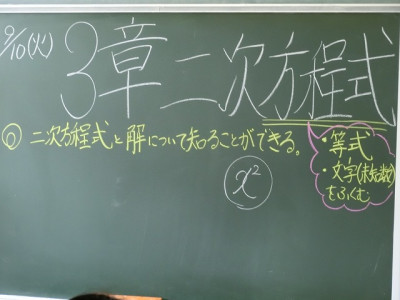 9/10(火)
3章 二次方程式
◎ 二次方程式と解について知ることができる。
・等式
・文字(未知数)
をふくむ
x²